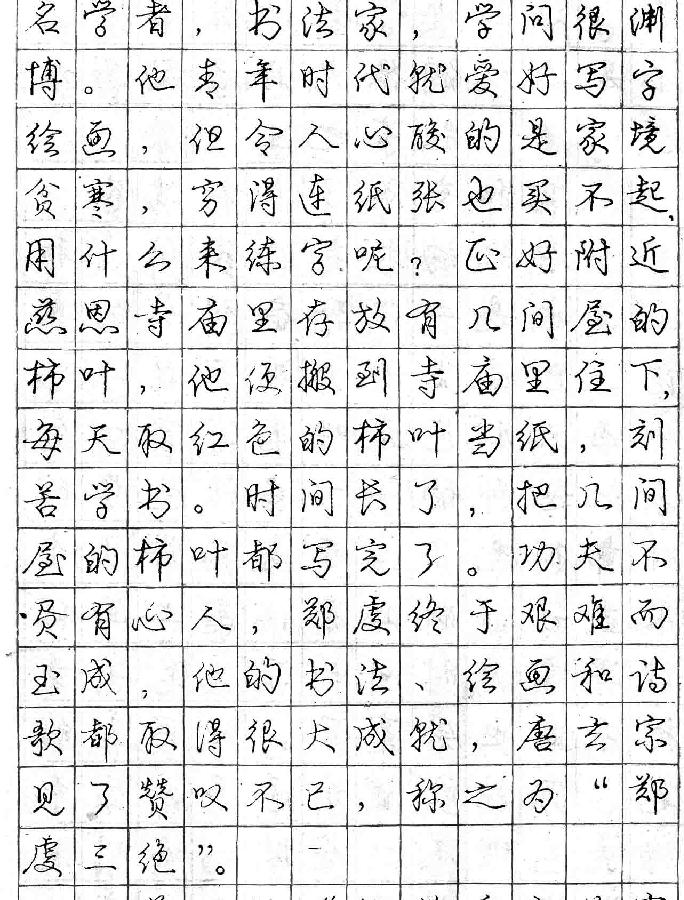 名学者，书法家，学问很渊
博。他青年时代就爱好写字
绘画，但令人心酸的是家境
贫寒，穷得连纸张也买不起，
用什么来练字呢？正好附近
慈恩寺庙里存放有几间屋的
柿叶，他便搬到寺庙里住下，
每天取红色的柿叶当纸，刻
苦学书。时间长了，把几间
屋的柿叶都写完了。功夫不
负有心人，郑虔终于艰难而
玉成，他的书法、绘画和诗
歌都取得很大成就，唐玄宗
见了赞叹不已，称之为“郑
虔三绝”。